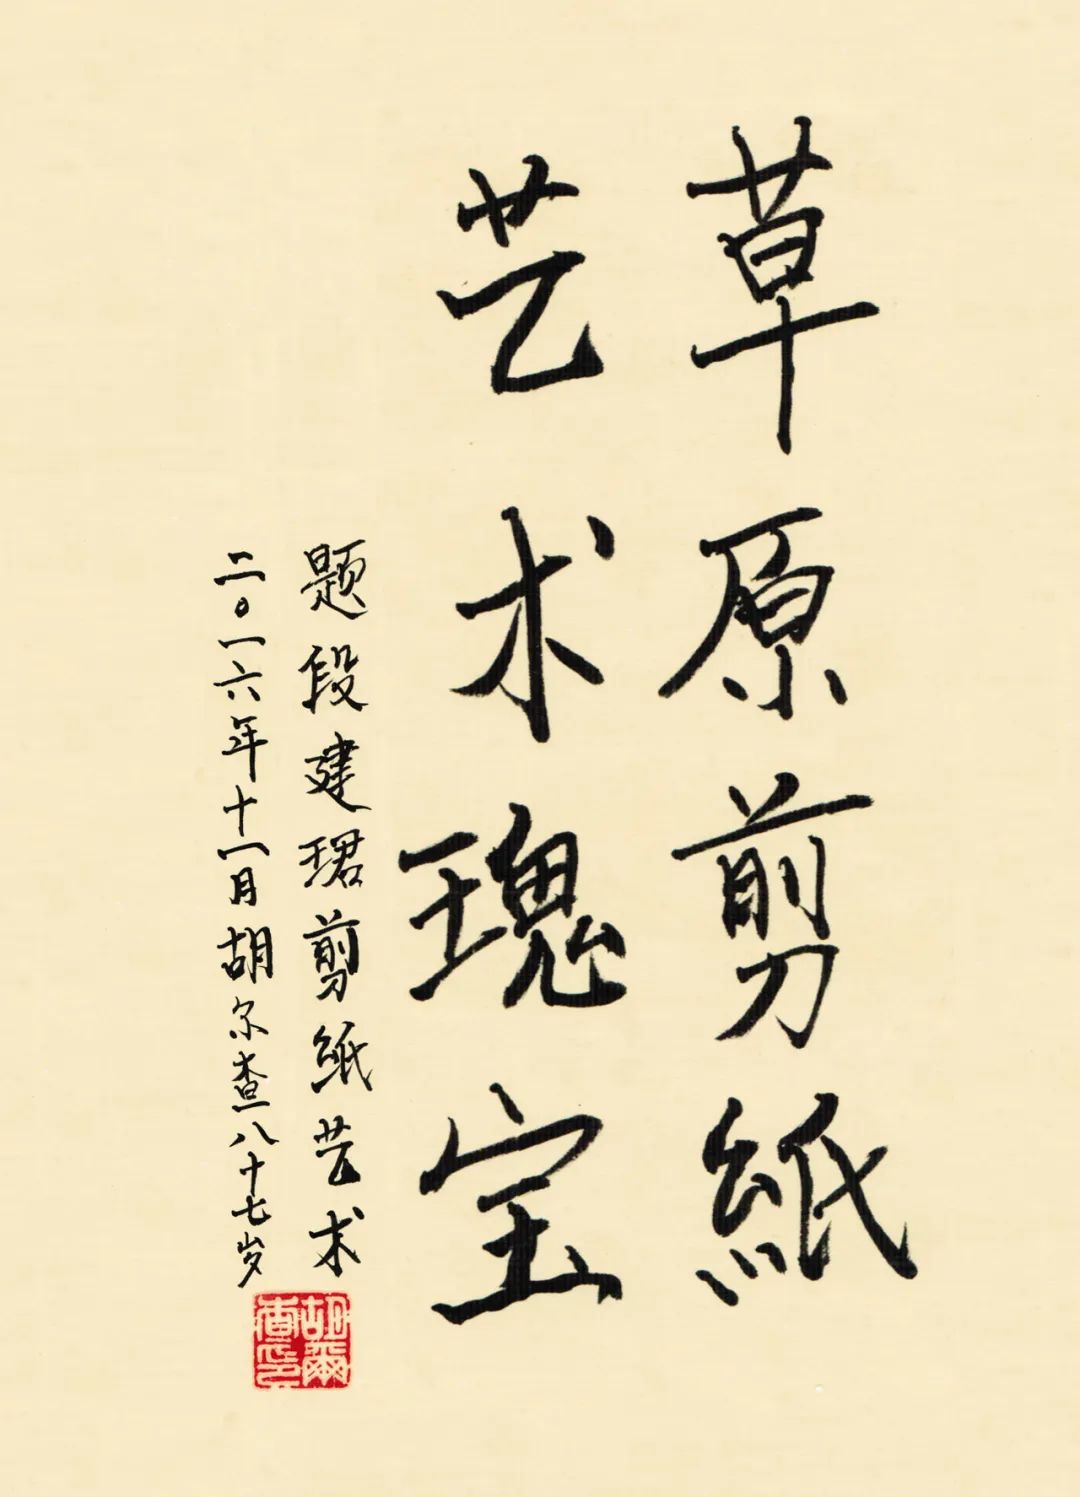 草原剪紙
艺术瑰宝
题段建珺剪紙艺术
二〇一六年十一月胡尔查八十七岁
胡爾查印